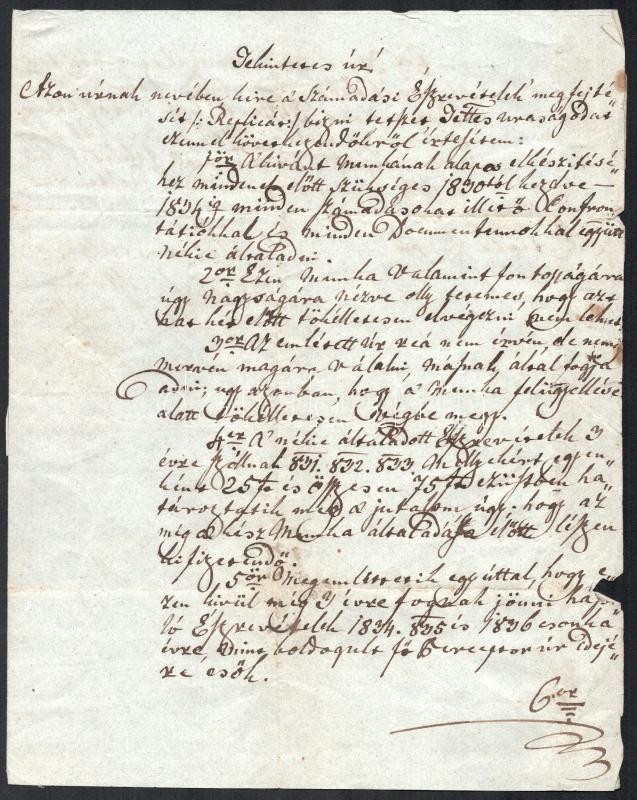 Tekintetes úr!
Azon úrnak nevében, kire a' Számadási Észrevételek megfejté"
sét /: Replicát :/ bizni tetszet Tettes uraságodat
ezennel következendőkről értesitem:
1ör A' kivánt Munkának alapos elkészitésé"
hez mindenek előtt szükséges 1830tól kezdve
1834ig minden számadásokat illető Confron"
tatiókkal és minden Documentumokkal együtt
nékie általadni.
2or Ezen Munka valamint fontosságára
úgy nagyságára nézve olly teremes, hogy azt
hat hét előtt tökélletesen elvégezni nem lehet.
3or Az emlétett úr reá nem érvén, de nem
mervén magára válalni, másnak által fogja
adni; ugyazonban, hogy a' Munka felügyellése
alatt tökélletesen végbe megy.
4er A' nékie általadott Észrevételek 3
évre szóllnak 831. 832. 833. Mellyekért egyen"
ként 25 és öszvesen 75 ezüstben ha"
tároztatik meg a jutalom úgy: hogy az
még a' kész Munka általadása előtt lészen
kifizetendő.
5ör Megemlittetik egyúttal, hogy e"
zen kivül még 3 évre fognak jönni ha
ló Észrevételek 1834. 835 és 1836 csonka
évre, mint boldogult fő Perceptor úr idejé"
ré esők.
6or